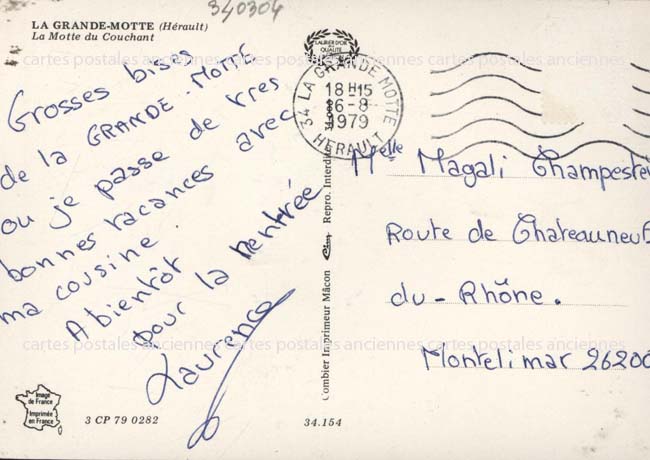 340304
LA GRANDE-MOTTE (Hérault)
La Motte du Couchant
Grosses bises
de la GRANDE-MOTTE
ou je passe de tres
bonnes vacances avec
ma cousine.
A bientôt
pour la rentrée
Laurence
Image
de France
Imprimée
en France
3 CP 79 0282
34.154
Combier Imprimeur Mâcon
Repro. Interdite
LAURIER D'OR
DE
QUALITÉ
34 LA GRANDE MOTTE
18H15
6-8
1979
HERAULT
Melle Magali Champester
Route de Chateauneuf
du-Rhône.
Montelimar 26200
cartes postales anciennes cartes postales anciennes cartes postales anciennes
cartes postales anciennes cartes postales anciennes cartes postales anciennes